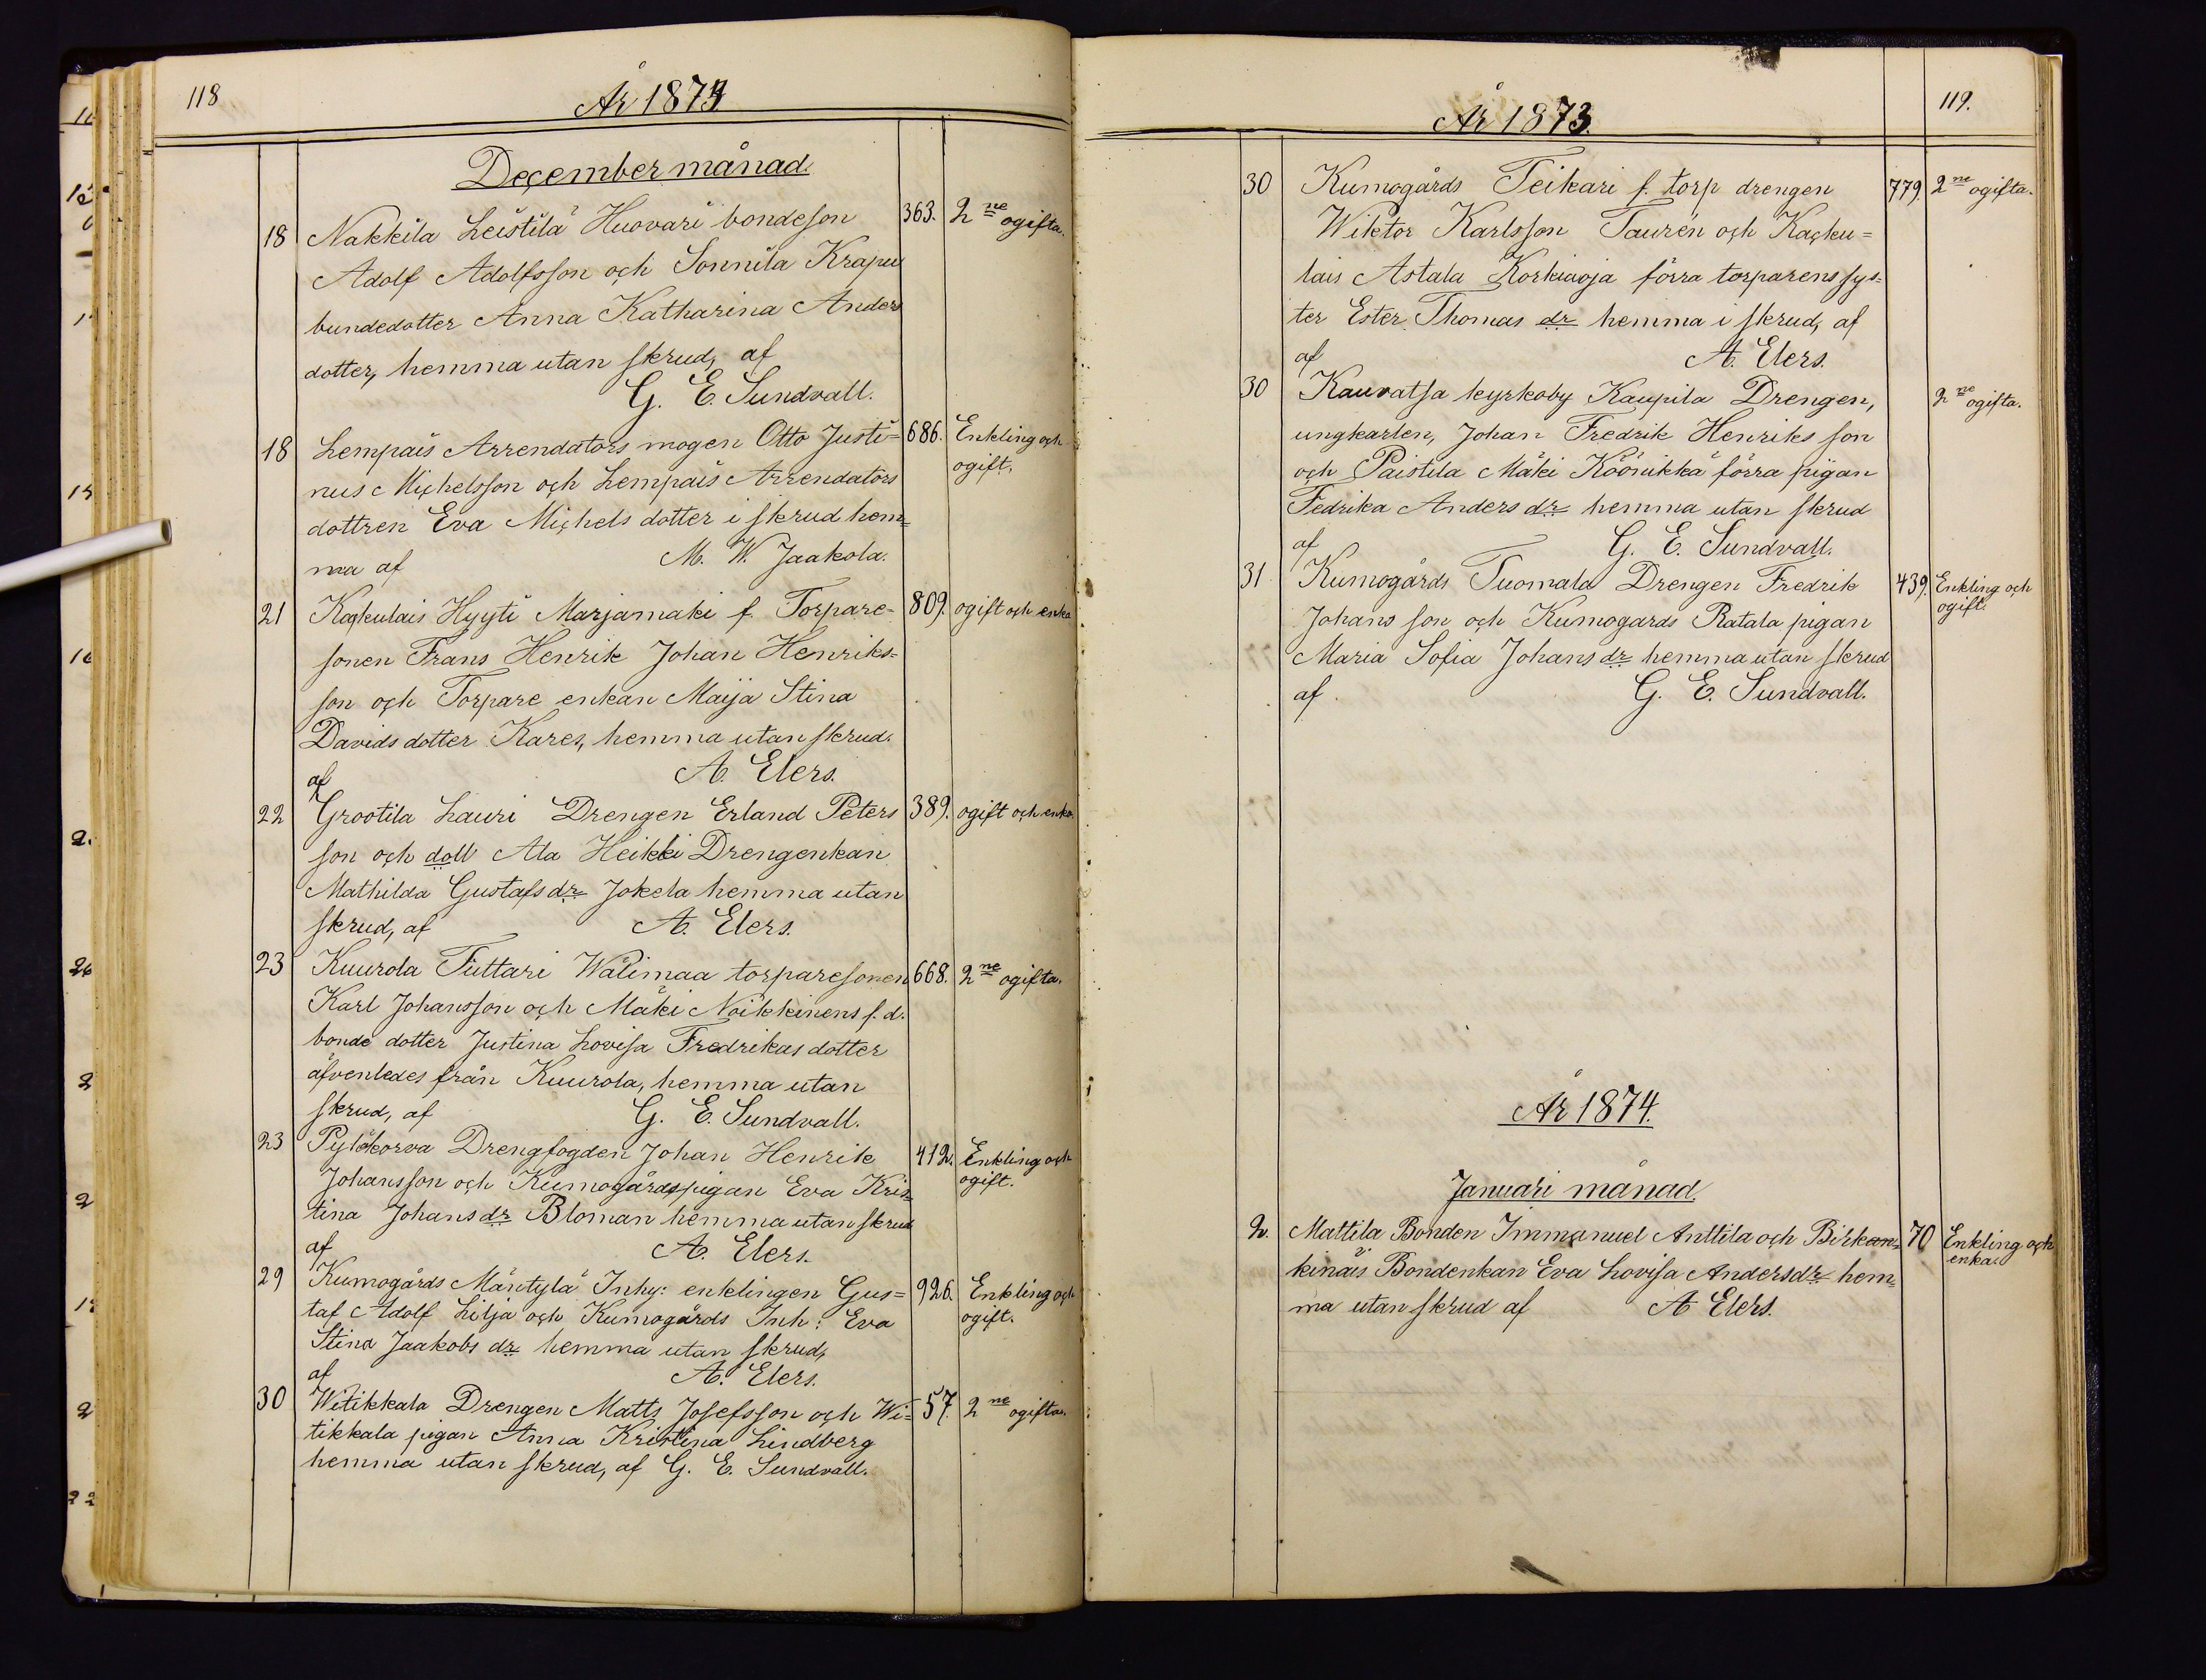 118
År 1873
December månad.
18 Nakkila Leistilä Huovari bondeson 363. 2ne ogifta.
Adolf Adolfsson och Sonnila Krapu
bundedotter Anna Katharina Anders
dotter, hemma utan skrud, af
G. E. Sundvall.
18 Lempais Arrendators mogen Otto Justi= 686. Enkling och
nus Michelsson och Lempais Arrendators ogift.
dottren Eva Michels dotter i skrud hem=
ma af M. W. Jaakola.
21 Kackulais Hyyti Marjamaki f. Torpare- 809. ogift och enka
sonen Frans Henrik Johan Henriks=
son och Torpare enkan Maija Stina
Davids dotter Kares, hemma utan skrud.
af A. Elers.
22 Grootila Lauri Drengen Erland Peters 389. ogift och enka.
son och doll Ala Heikki Drengenkan
Mathilda Gustafs dr Jokela hemma utan
skrud, af A. Elers.
23 Kuurola Tuttari Wälimaa torparesonen 668. 2ne ogifta.
Karl Johansson och Mäki Noikkinens f. d.
bonde dotter Justina Lovisa Fredrikas dotter
äfvenledes från Kuurola, hemma utan
skrud, af G. E. Sundvall.
23 Pyläkorva Drengfogden Johan Henrik 412. Enkling och
Johansson och Kumogårdspigan Eva Kris= ogift.
tina Johans dr Bloman hemma utan skrud
af A. Elers.
29 Kumogårds Mäntylä Inhy: enklingen Gus= 926. Enkling och
taf Adolf Lilja och Kumogårds Inh: Eva ogift.
Stina Jaakobs dr hemma utan skrud,
af A. Elers.
30 Witikkala Drengen Matts Josefsson och Wi= 57. 2ne ogifta.
tikkala pigan Anna Kristina Lindberg
hemma utan skrud, af G. E. Sundvall.
119.
År 1873.
30 Kumogårds Teikari f. torp drengen 779. 2ne ogifta.
Wiktor Karlsson Taurén och Kacku=
lais Astala Korkiaoja förra torparens sys=
ter Ester Thomas dr hemma i skrud, af
af A. Elers.
30 Kauvatsa kyrkoby Kaupila Drengen, 2ne ogifta.
ungkarlen, Johan Fredrik Henriks son
och Paistila Mäki Köönikkä förra pigan
Fedrika Anders dr hemma utan skrud
af G. E. Sundvall.
31 Kumogårds Tuomala Drengen Fredrik 439. Enkling och
Johans son och Kumogards Ratala pigan ogift.
Maria Sofia Johans dr hemma utan skrud
af G. E. Sundvall.
År 1874.
Januari månad.
2. Mattila Bonden Immanuel Anttila och Birkan= 70 Enkling och
kinäis Bondenkan Eva Lovisa Anders dr hem= enka.
ma utan skrud af A Elers.